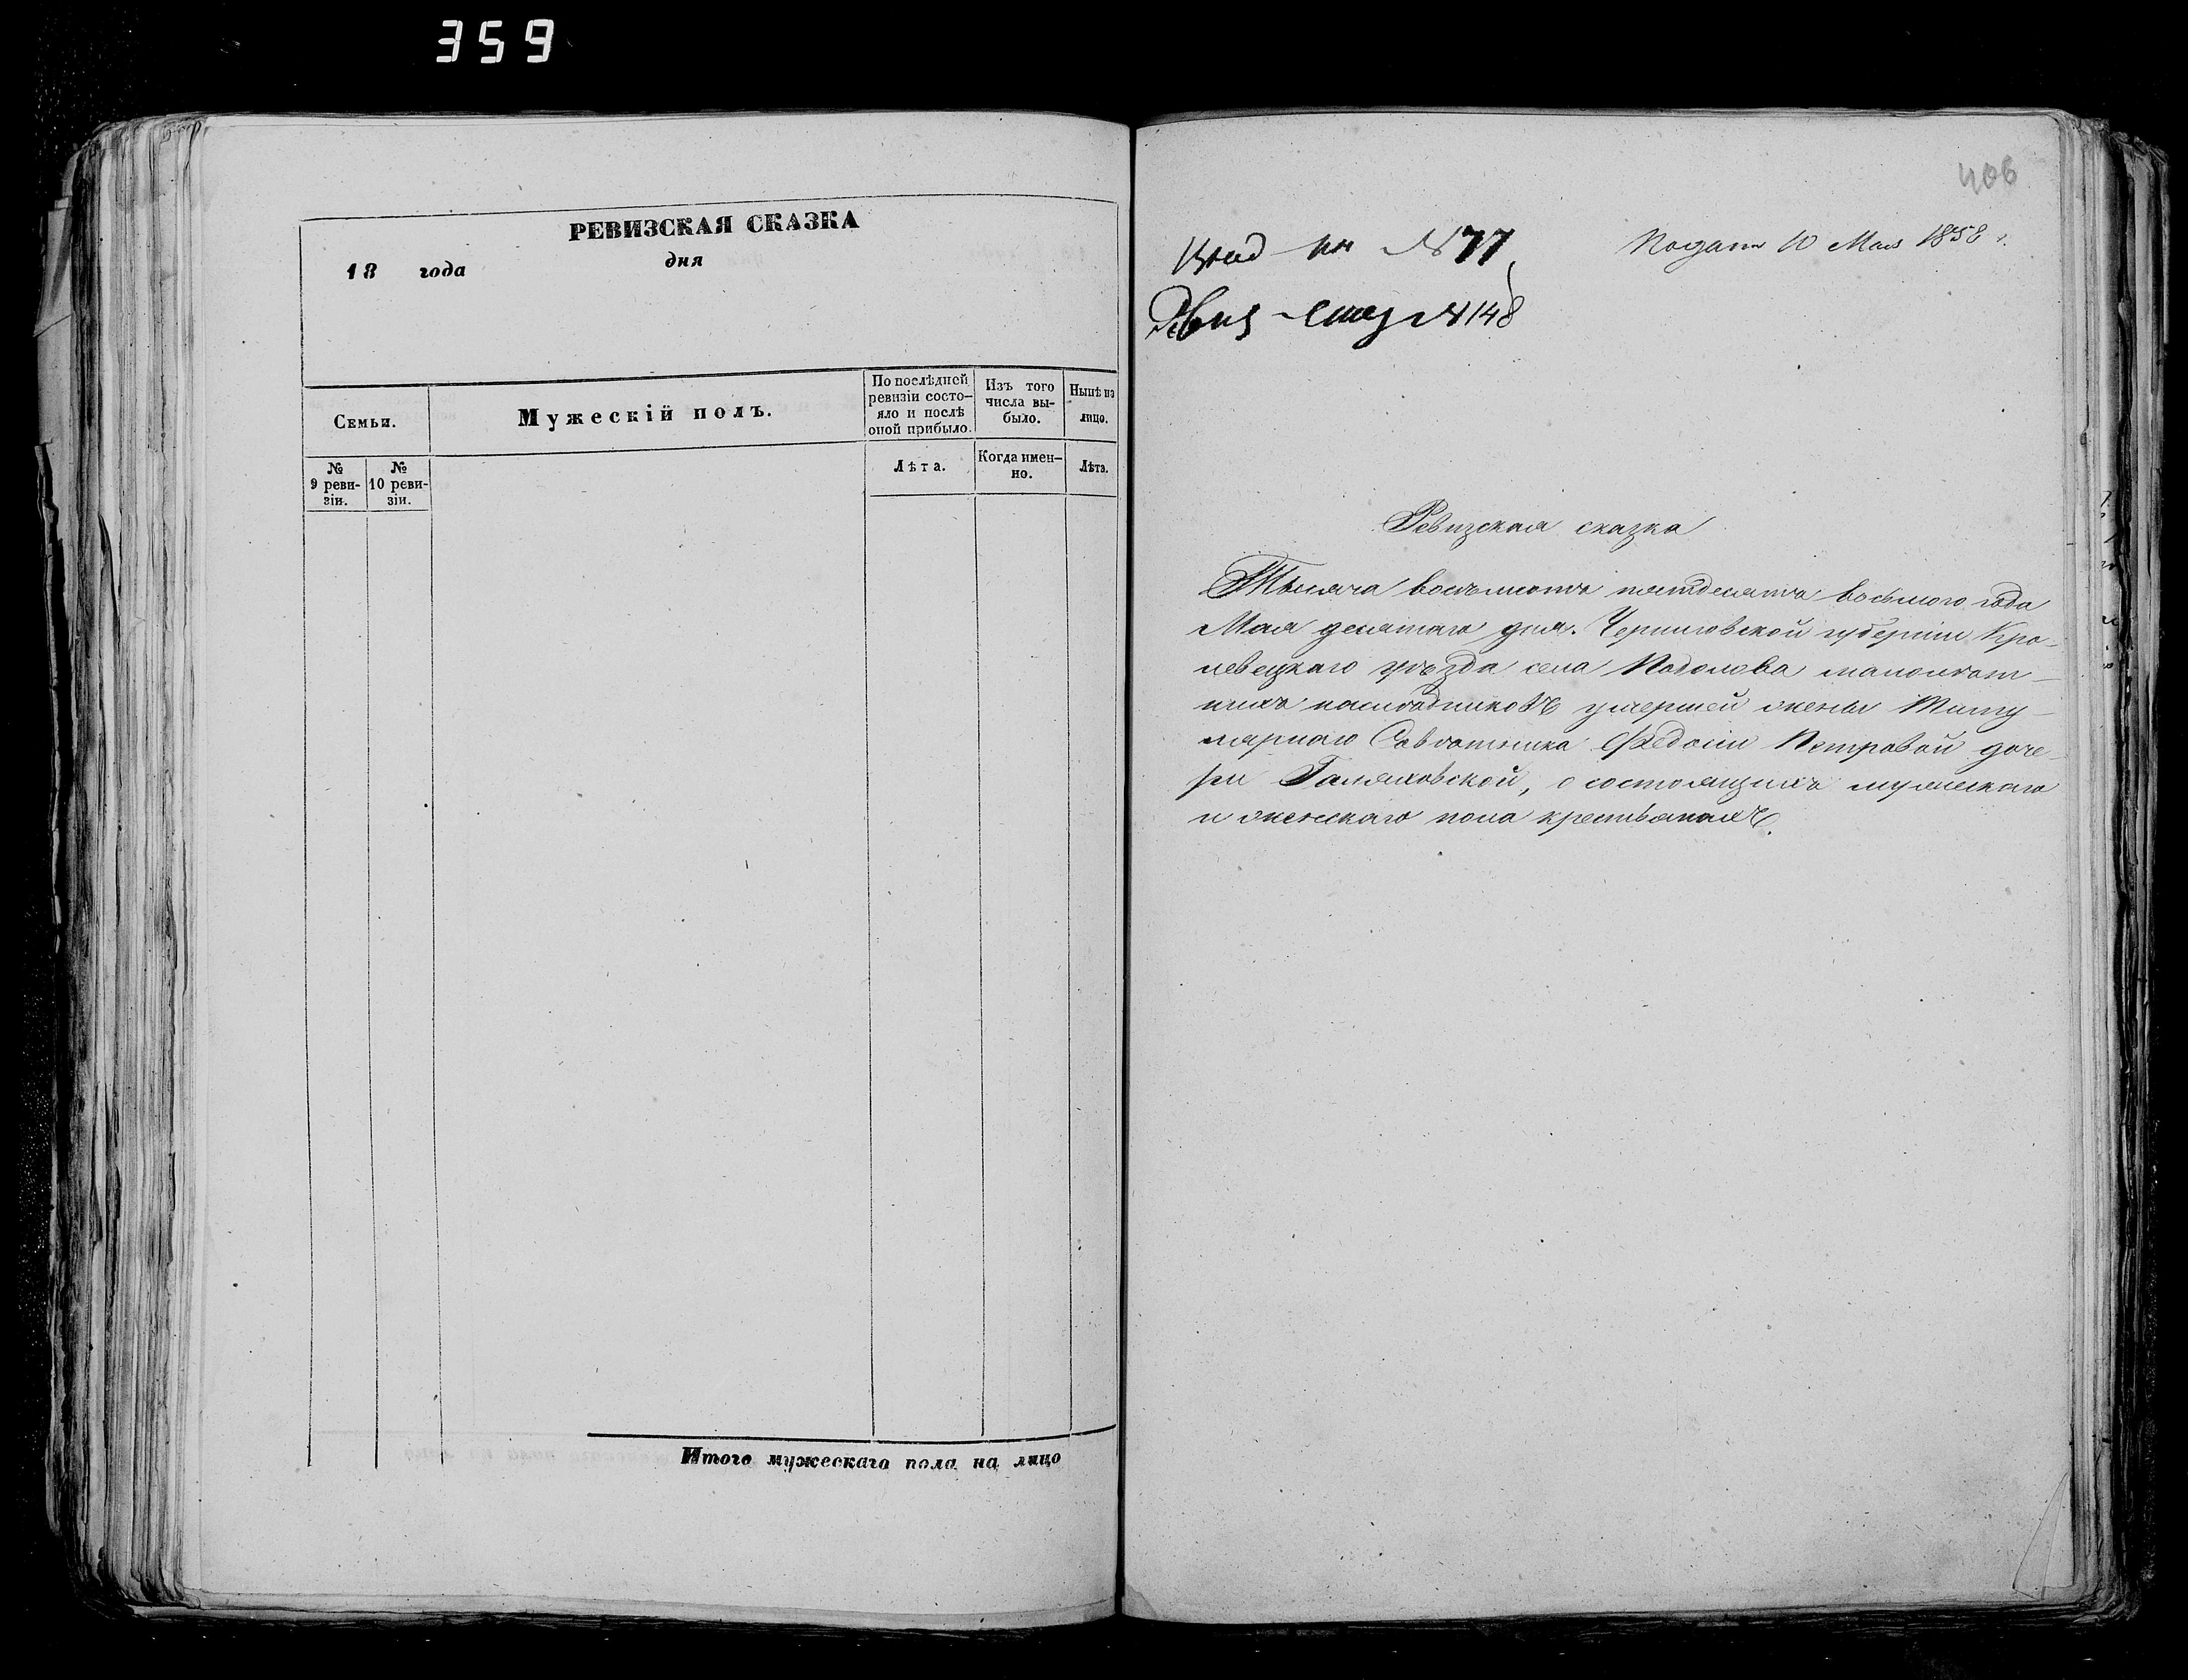 359
РЕВИЗСКАЯ СКАЗКА
18 года дня
Семьи.
Мужескій полъ.
По послѣдней ревизіи состо-
яло и послѣ оной прибыло.
Изъ того числа вы-
было.
Нынѣ на лицо.
№ 9 реви-
зіи.
№ 10 реви-
зіи.
Лѣта.
Когда имен-
но.
Лѣта.
Итого мужескаго пола на лицо
406
№ 77
Подана 10 Мая 1858 г.
№ 148
Ревизская сказка
Тысяча восемьсотъ пятдесятъ восьмого года
Мая десятаго дня. Черниговской губерніи Кро-
левецкаго уѣзда села Подолова малолѣт-
нихъ наслѣдниковъ умершей жены Титу-
лярнаго Совѣтника Федосіи Петровой доче-
ри Галяховской, о состоящихъ мужескаго
и женскаго пола крестьянахъ.